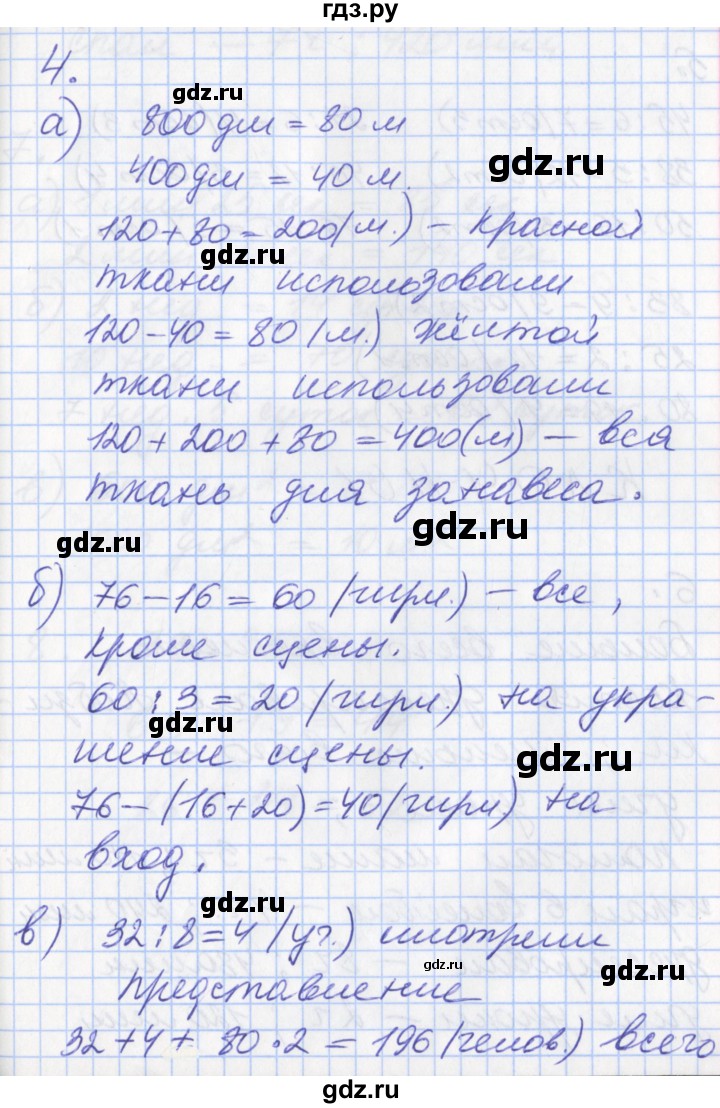 гдз.ру
4.
gdz.ru
а) 800 дм = 80 м
400 дм = 40 м.
gdz.ru
120 + 80 = 200 (м.) – красной
ткани использовали
120 – 40 = 80 (м.) жёлтой
ткани использовали
120 + 200 + 80 = 400 (м) – вся
ткань для занавеса.
gdz.ru
gdz.ru
б) 76 – 16 = 60 (гирл.) – все,
кроме сцены.
60 : 3 = 20 (гирл.) на укра-
gdz.ru
шение сцены.
gdz.ru
76 – (16 + 20) = 40 (гирл) на
вход.
gdz.ru
в) 32 : 8 = 4 (уч.) смотрели
gdz.ru
gdz.ru
представление
32 + 4 + 80 · 2 = 196 (челов.) всего
gdz.ru
gdz.ru